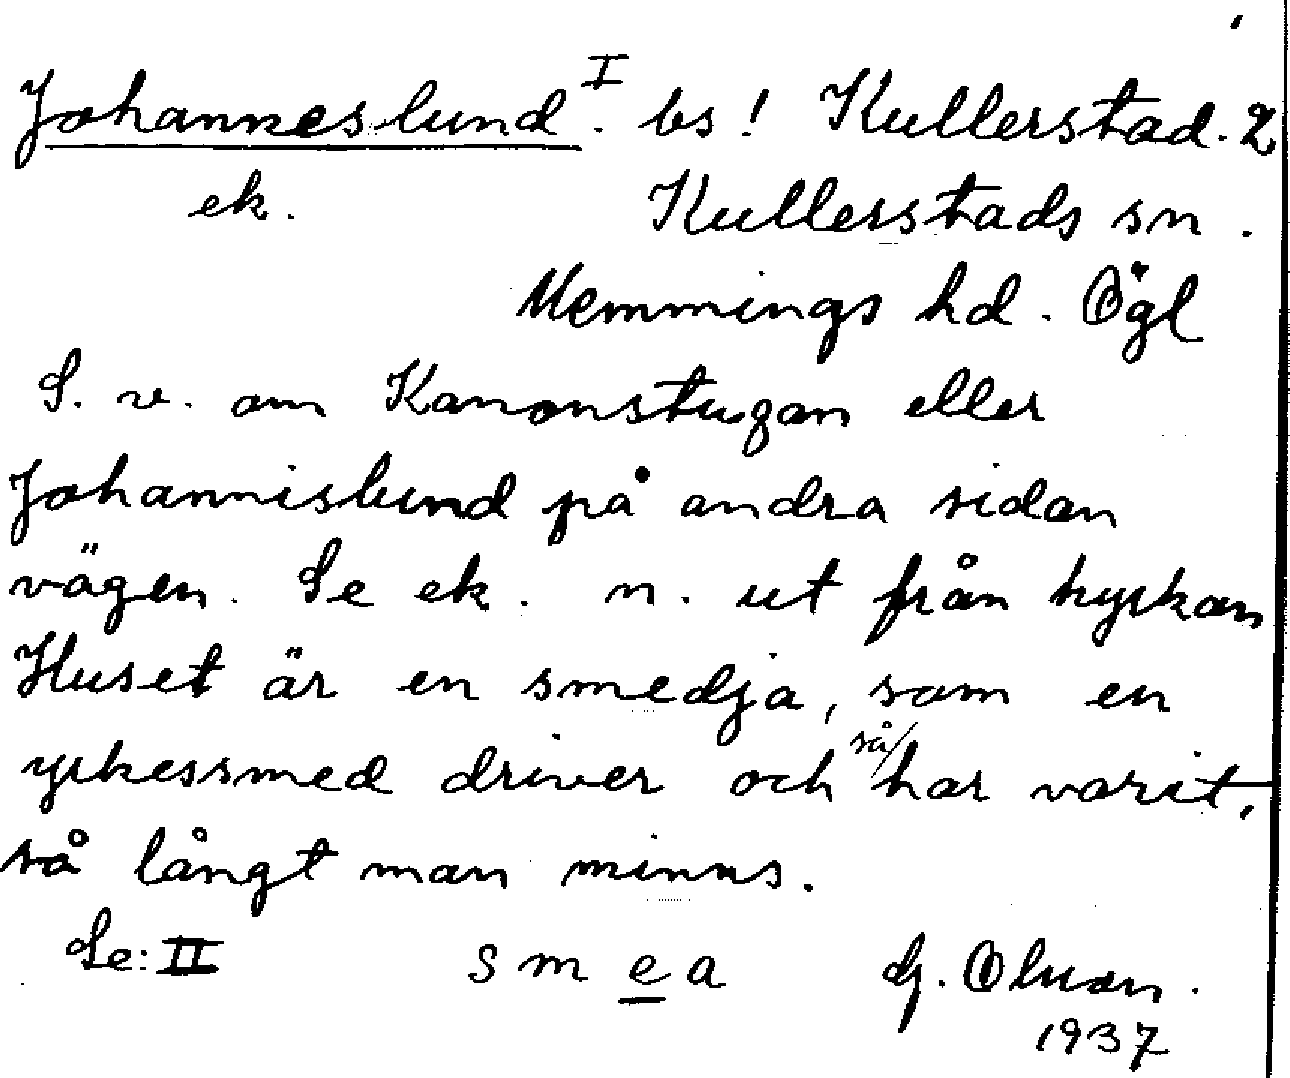 Johanneslund I. bs! Kullerstad. 2
ek. Kullerstads sn.
Memmings hd. Ögl
S. v. om Kanonstugan eller
Johannislund på andra sidan
vägen. Se ek. n. ut från kyrkan
Huset är en smedja, som en
yrkessmed driver och så har varit,
så långt man minns.
Se: II smea G.
1937